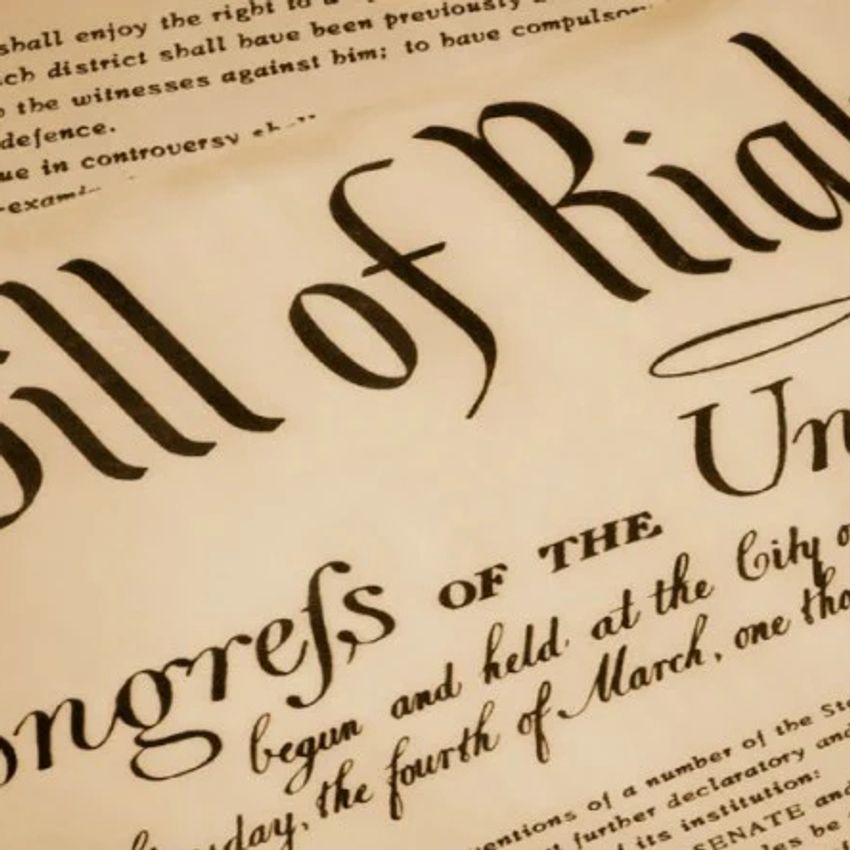 shall enjoy the right to a
ch district shall have been previously
the witnesses against him; to have compulsory
defence.
ue in controversy shall
-exami
Bill of Rig
Un
ongreſs OF THE
begun and held at the City o
day, the fourth of March, one tho
entions of a number of the Sta
t further declaratory and
its institution:
SENATE and
les be